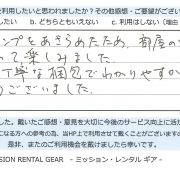 利用したいと思われましたか？その他感想・ご要望がござい
たい　b. どちらともいえない　c. 利用はしない（理由
ンプをあきらめたため、部屋の
って楽しみました。
丁寧な梱包でわかりやすか
うございました。
した。戴いたご感想・意見を大切に今後のサービス向上に活か
になる方への参考の為、当HP上で利用させて戴くことがございますが
是非、またの機会を戴けましたら幸いです。
SION RENTAL GEAR - ミッション・レンタル ギア -